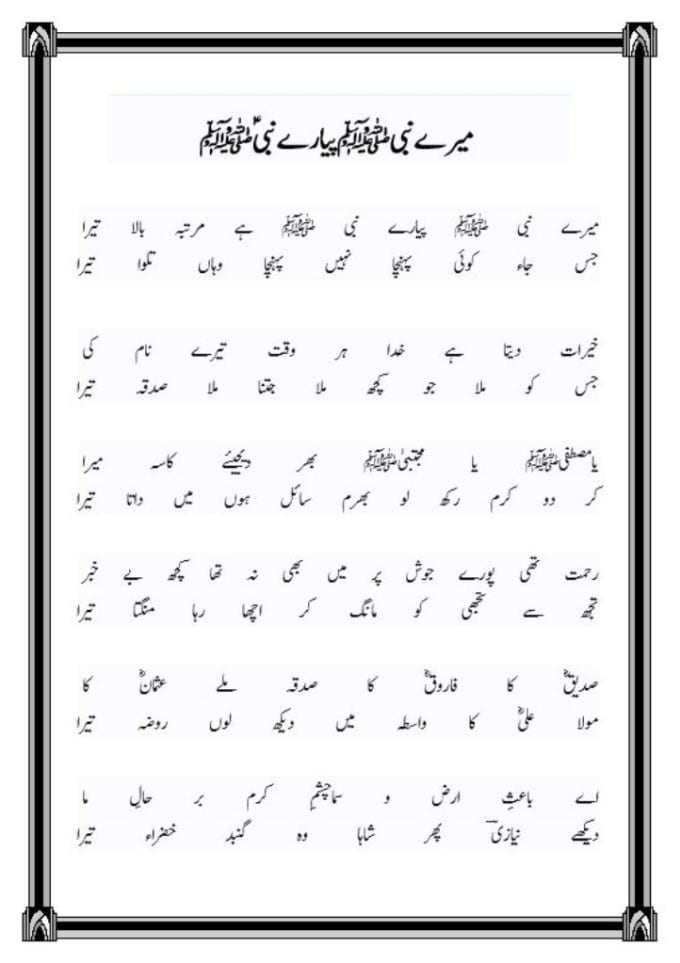 میرے نبی ﷺ پیارے نبی ﷺ
میرے نبی ﷺ پیارے نبی ﷺ ہے مرتبہ بالا تیرا
جس جاء کوئی پہنچا نہیں پہنچا وہاں تلوا تیرا
خیرات دیتا ہے خدا ہر وقت تیرے نام کی
جس کو ملا جو کچھ ملا جتنا ملا صدقہ تیرا
یامصطفیٰ ﷺ یا مجتبیٰ ﷺ بھر دیجیئے کاسہ میرا
کر دو کرم رکھ لو بھرم سائل ہوں میں داتا تیرا
رحمت تھی پورے جوش پر میں بھی نہ تھا کچھ بے خبر
تجھ سے تجھی کو مانگ کر اچھا رہا منگتا تیرا
صدیقؓ کا فاروقؓ کا صدقہ ملے عثمانؓ کا
مولا علیؓ کا واسطہ میں دیکھ لوں روضہ تیرا
اے باعثِ ارض و سماچشمِ کرم بر حالِ ما
دیکھے نیازیؔ پھر شاہا وہ گنبد خضراء تیرا